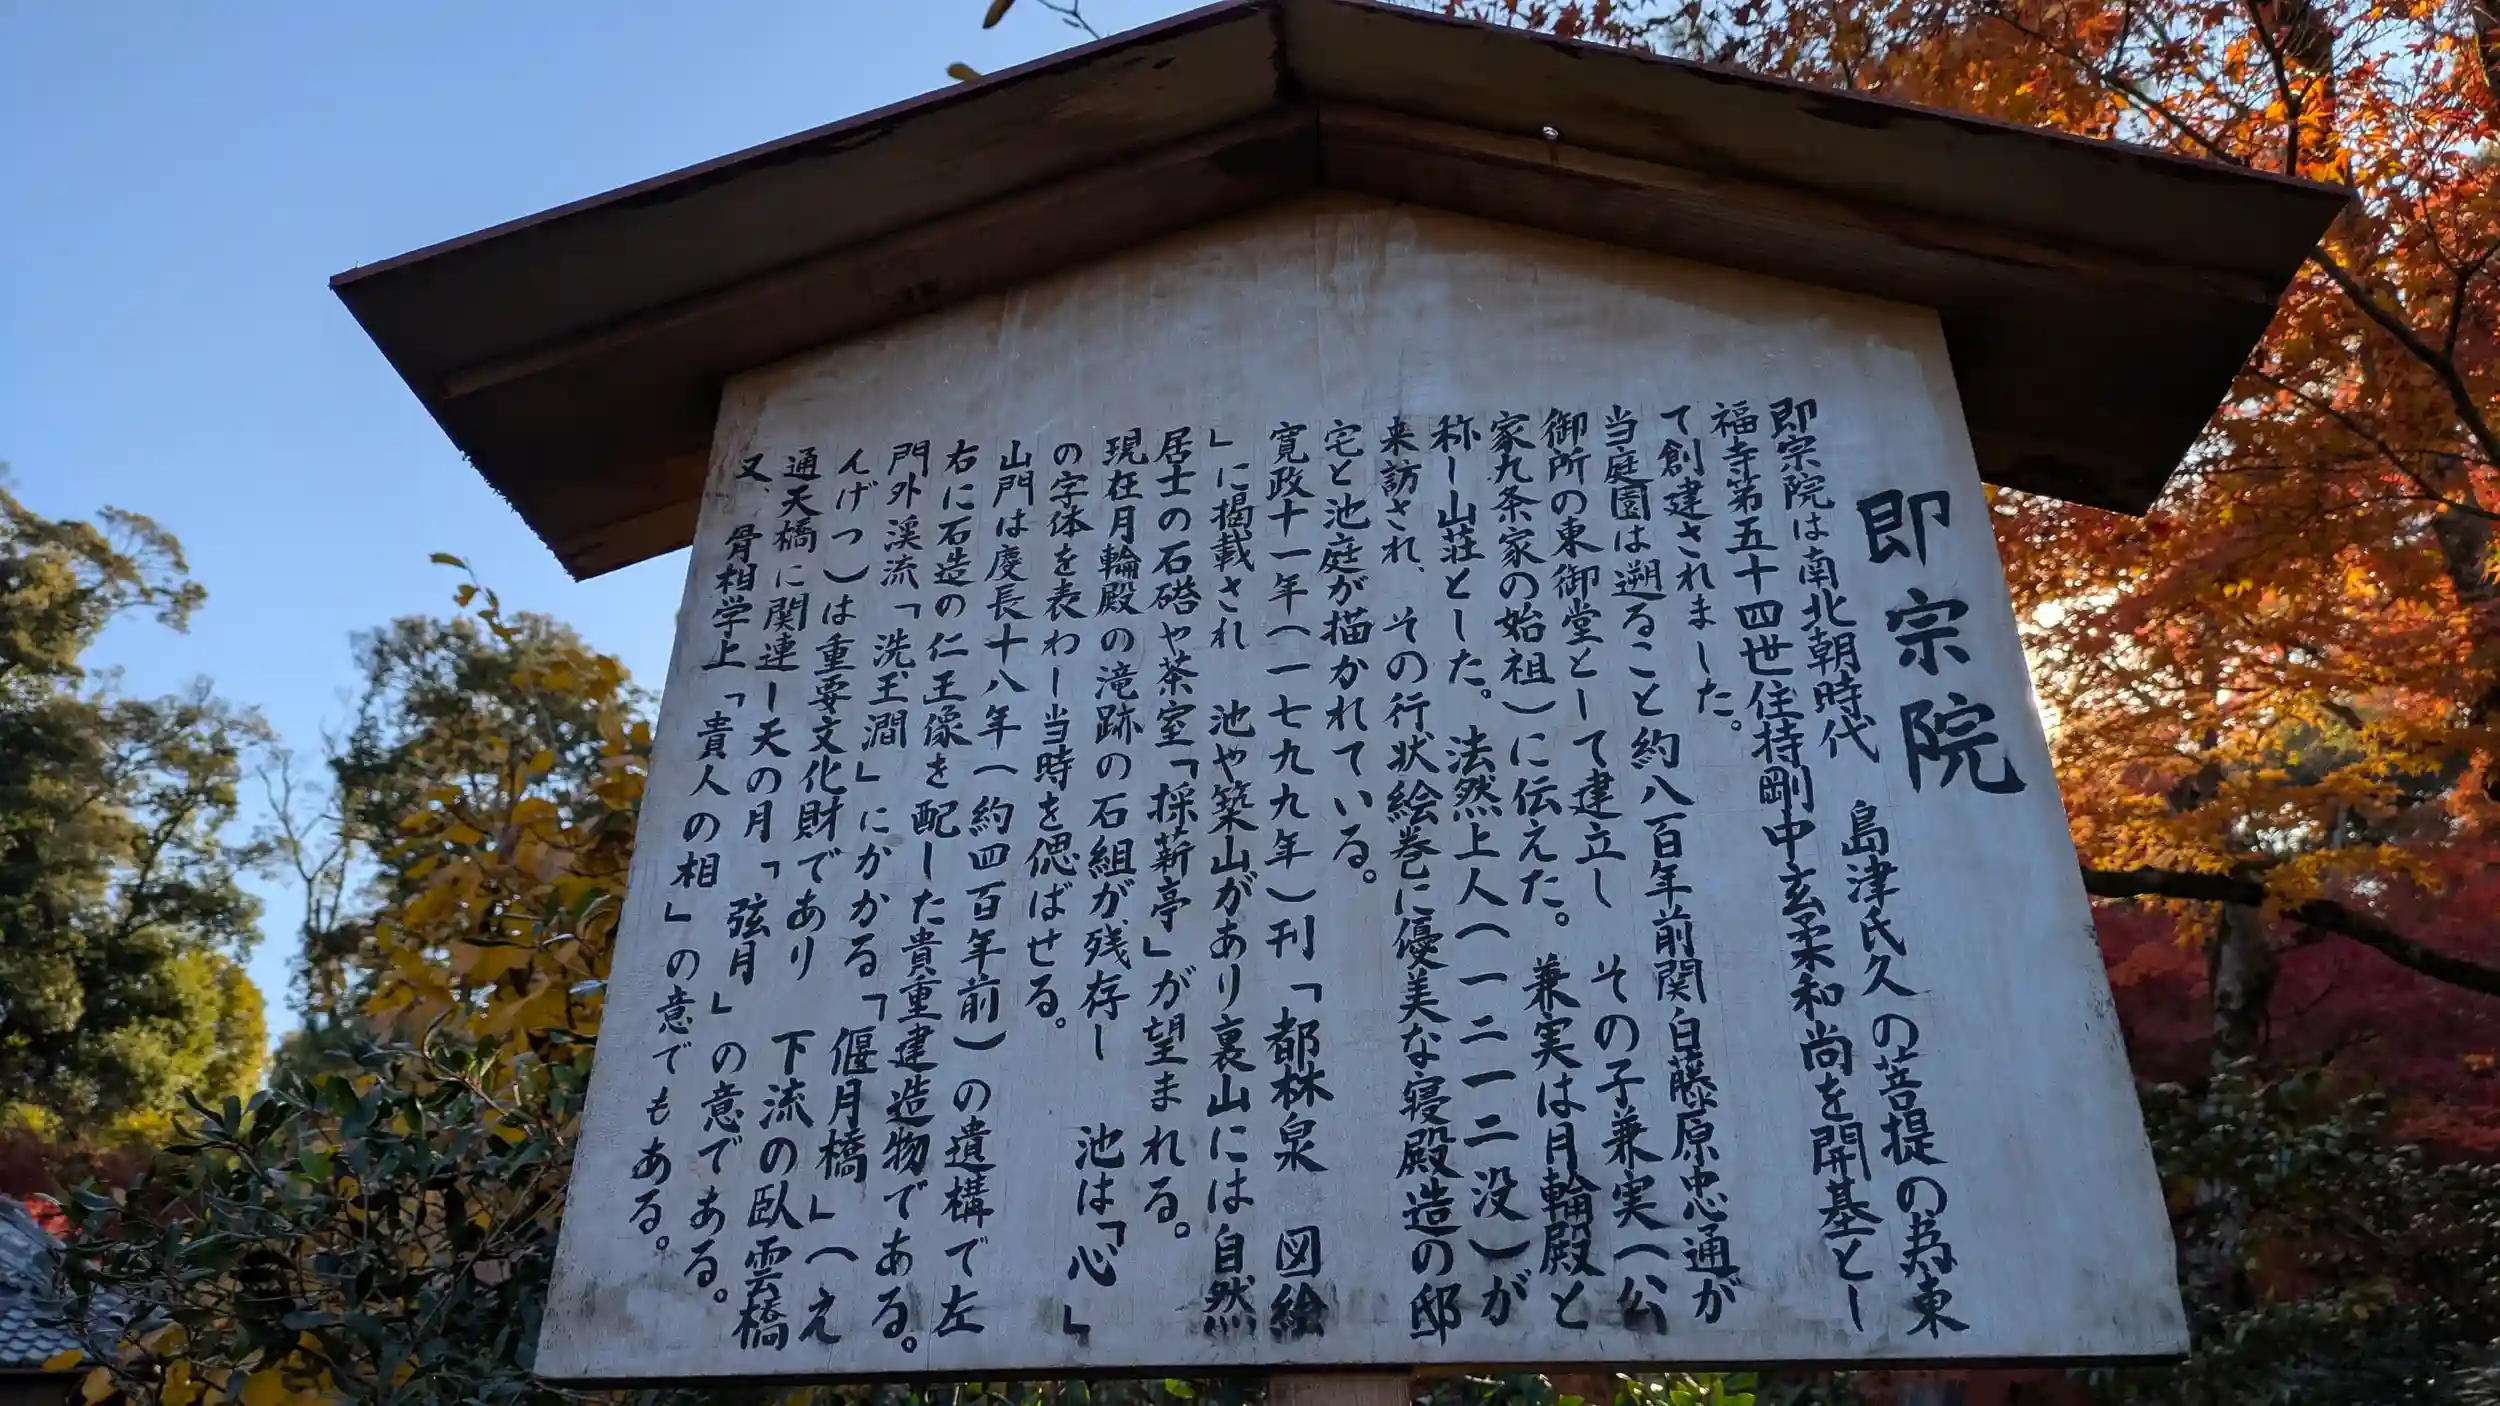 即宗院
即宗院は南北朝時代　島津氏久の菩提の為東
福寺第五十四世住持剛中玄柔和尚を開基とし
て創建されました。
当庭園は遡ること約八百年前関白藤原忠通が
御所の東御堂として建立し　その子兼実（公
家九条家の始祖）に伝えた。兼実は月輪殿と
称し山荘とした。法然上人（一二一二没）が
来訪され、その行状絵巻に優美な寝殿造の邸
宅と池庭が描かれている。
寛政十一年（一七九九年）刊「都林泉　図絵
」に掲載され　池や築山があり裏山には自然
居士の石磴や茶室「採薪亭」が望まれる。
現在月輪殿の滝跡の石組が残存し　池は「心」
の字体を表わし当時を偲ばせる。
山門は慶長十八年（約四百年前）の遺構で左
右に石造の仁王像を配した貴重建造物である。
門外渓流「洗玉澗」にかかる「偃月橋」（え
んげつ）は重要文化財であり　下流の臥雲橋
通天橋に関連し天の月「弦月」の意である。
又、骨相学上「貴人の相」の意でもある。